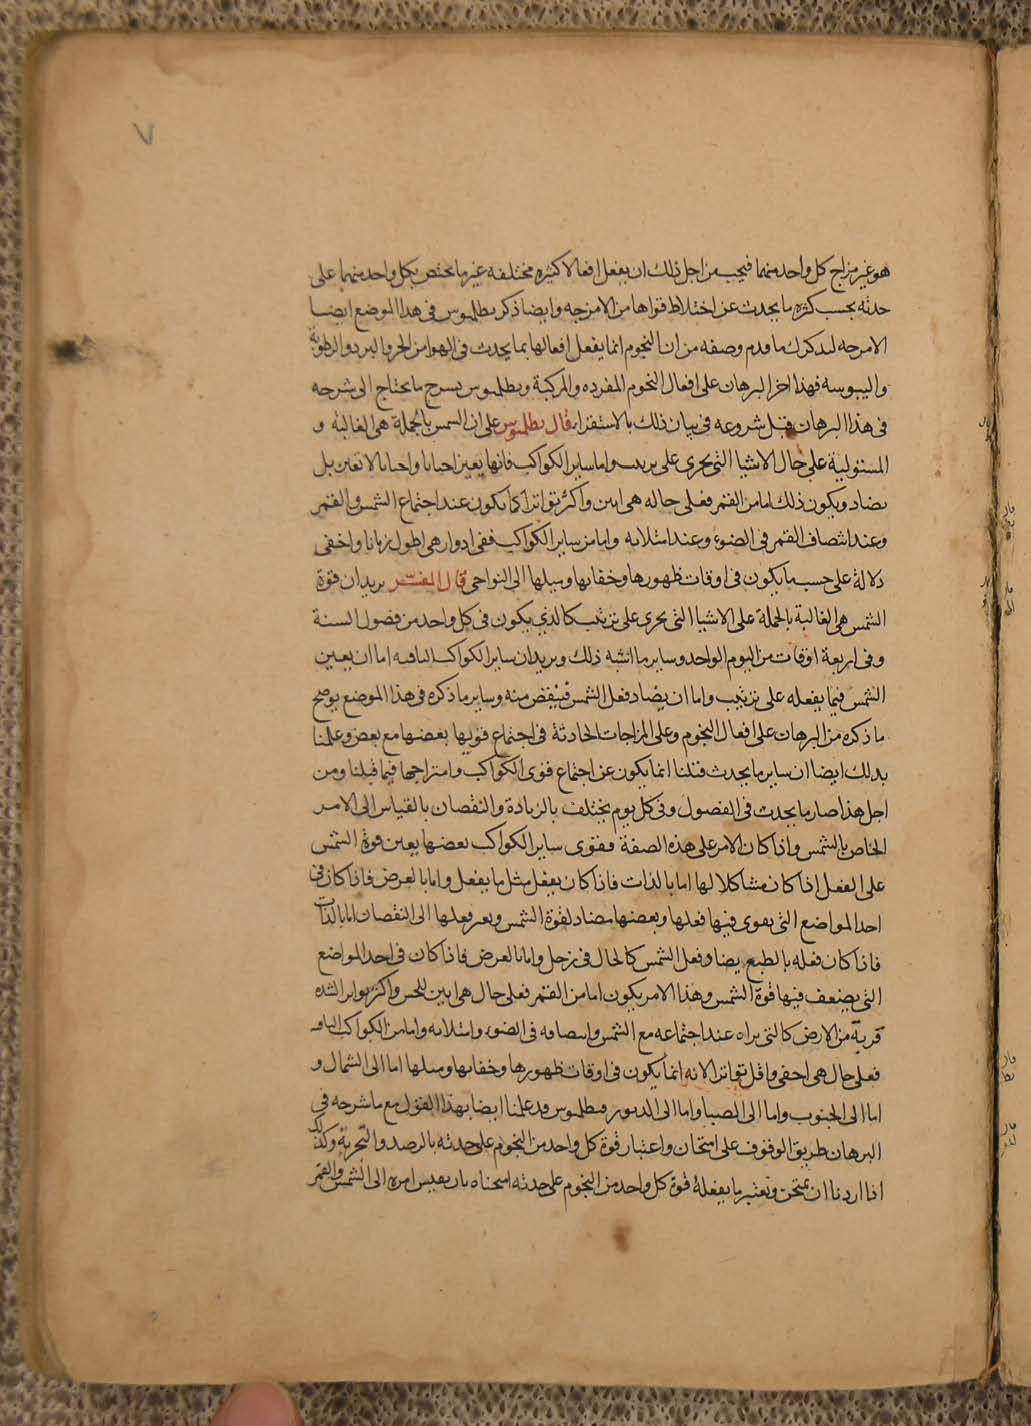 ٧
هو غير مزاج كل واحد منهما فيجب من اجل ذلك ان يفعل افعالا كثيره مختلفه غير ما يختص بكل واحد منهما على
حدته بحسب كثرة ما يحدث عن اختلاط قواها من الامزجه وايضا ذكر بطلميوس فى هذا الموضع ايضا
الامزجه ليذكرك ما قدم وصفه من ان النجوم انما يفعل افعالها بما يحدث فى الهوا من الحر والبرد والرطوبة
واليبوسه فهذا اخر البرهان على افعال النجوم المفرده والمركبة وبطلميوس يشرح ما يحتاج الى شرحه
فى هذا البرهان قبل شروعه فى بيان ذلك بالاستقراء قال بطلميوس على ان الشمس بالجملة هى الغالبه و
المستولية على حال الاشيا التى يجرى على ترتيب واما ساير الكواكب فانها يعين احيانا واحيانا لا تعين بل
يضاد ويكون ذلك اما من القمر فعلى حاله هى ابين واكثر تواترا كما يكون عند اجتماع الشمس والقمر
وعند انتصاف القمر فى الضوء وعند امتلائه واما من ساير الكواكب ففى ادوار هى اطول زمانا واخفى
دلالة على حسب ما يكون فى اوقات ظهورها وخفايها وميلها الى النواحى قال المفسر يريد ان قوة
الشمس هى الغالبة بالجملة على الاشيا التى يجرى على ترتيب كالذى يكون فى كل واحد من فصول السنة
وفى اربعة اوقات من اليوم الواحد وساير ما اشبه ذلك ويريد ان ساير الكواكب الباقيه اما ان يعين
الشمس فيما يفعله على ترتيب واما ان يضاد فعل الشمس فينقص منه وساير ما ذكره فى هذا الموضع يوضح
ما ذكره من البرهان على افعال النجوم وعلى المزاجات الحادثة فى اجتماع قويها بعضها مع بعض وعلمنا
بذلك ايضا ان ساير ما يحدث قبلنا انما يكون عن اجتماع قوى الكواكب وامتزاجها فيما قبلنا ومن
اجل هذا صار ما يحدث فى الفصول وفى كل يوم يختلف بالزيادة والنقصان بالقياس الى الامر
الخاص بالشمس واذا كان الامر على هذه الصفة فقوى ساير الكواكب بعضها يعين قوة الشمس
على الفعل اذا كان مشاكلا لها اما بالذات فاذا كان يفعل مثل ما يفعل واما بالعرض فاذا كان فى
احد المواضع التى يقوى فيها فعلها وبعضها مضاد لقوة الشمس ويعر فعلها الى النقصان اما بالذات
فاذا كان فعله بالطبع يضاد فعل الشمس كالحال فى زحل واما بالعرض فاذا كان فى احد المواضع
التى يضعف فيها قوة الشمس وهذا الامر يكون اما من القمر فعلى حال هى ابين للحس واكثر تواترا لشدة
قربة من الارض كالتى نراه عند اجتماعه مع الشمس وانتصافه فى الضوء وامتلائه واما من الكواكب الباقيه
فعلى حال هى اخفى واقل تواترا لانه انما يكون فى اوقات ظهورها وخفائها وميلها اما الى الشمال و
اما الى الجنوب واما الى الصبا واما الى الدبور فبطلميوس قد علمنا ايضا بهذا القول مع ما شرحه فى
البرهان طريق الوقوف على امتحان واعتبار قوة كل واحد من النجوم على حدته بالرصد والتجربة وكذلك
اذا اردنا ان نمتحن ونعتبر ما يفعله قوة كل واحد من النجوم على حدته امتحناه بان نقيس امره الى الشمس والقمر